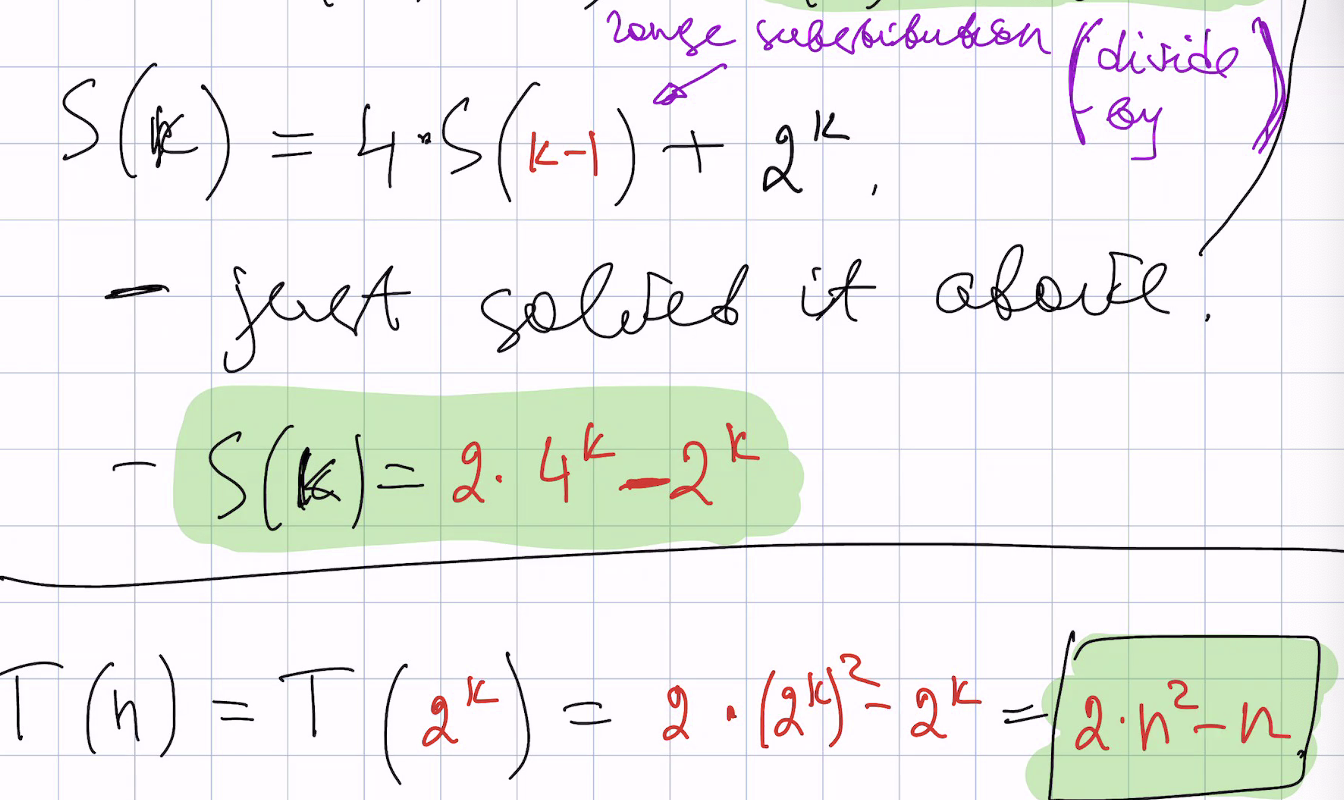 range substitution (divide
by)
S(k) = 4·S(k-1) + 2^k.
- just solved it above.
- S(k) = 2·4^k - 2^k
T(n) = T(2^k) = 2·(2^k)^2 - 2^k = 2·n^2 - n